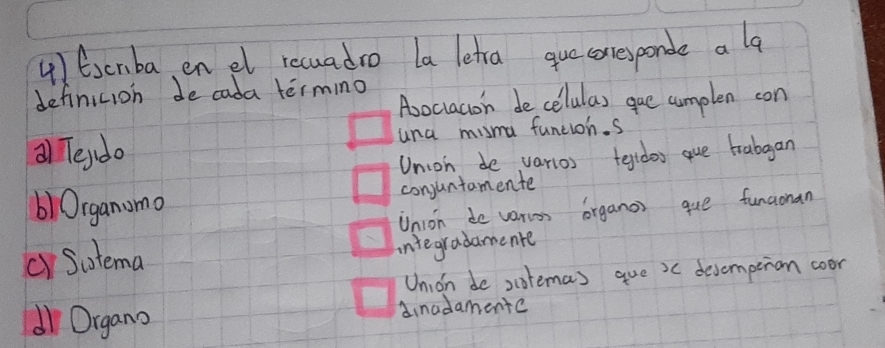 4) Escriba en el recuadro la letra que corresponde a la
definición de cada término
Asociación de células que cumplen con
una misma función.s
a) Tejido
Unión de varios tejidos que trabajan
conjuntamente
b) Organismo
Unión de varios órganos que funcionan
integradamente
c) Sistema
Unión de sistemas que se desempeñan coor
dinadamente
d) Organo